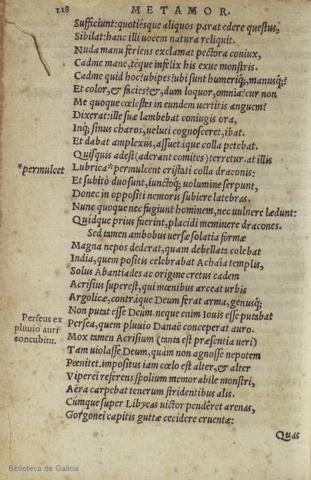 118 METAMOR.
Sufficiunt: quotiésque aliquos parat edere questus,
Sibilat: hanc illi vocem natura reliquit.
Nuda manu feriens exclamat pectora coniux,
Cadme mane, téque infelix his exue monstris.
Cadme quid hoc? ubi pes? ubi sunt humeríq;, manúsq;?
Et color, & facies? &, dum loquor, omnia? cur non
Me quoque cœlestes in eundem uertitis anguem?
Dixerat: ille suæ lambebat coniugis ora,
Inq; sinus charos, ueluti cognosceret, ibat.
Et dabat amplexus, assuetáque colla petebat.
Quisquis adest (aderant comites) terretur. at illis
*permulcet
Lubrica *permulcent cristati colla draconis:
Et subitò duo sunt, iunctoq; uolumine serpunt,
Donec in oppositi nemoris subiere latebras.
Nunc quoque nec fugiunt hominem, nec uulnere lædunt:
Quidque prius fuerint, placidi meminere dracones.
Sed tamen ambobus uersæ solatia formæ
Magna nepos dederat, quam debellata colebat
India, quem positis celebrabat Achaïa templis,
Solus Abantiades ac origine cretus eadem
Acrisius superest, qui mœnibus arceat urbis
Argolicæ, contráque Deum ferat arma, genusq;
Non putat esse Deum. neque enim Iouis esse putabat
Perseus ex
pluuio auri
concubitu.
Persea, quem pluuio Danaë conceperat auro.
Mox tamen Acrisium (tanta est præsentia ueri)
Tam uiolasse Deum, quàm non agnosse nepotem
Pœnitet. impositus iam cœlo est alter, & alter
Viperei referens spolium memorabile monstri,
Aëra carpebat tenerum stridentibus alis.
Cúmque super Libycas uictor pendêret arenas,
Gorgonei capitis guttæ cecidere cruentæ:
Quas
Biblioteca de Galicia